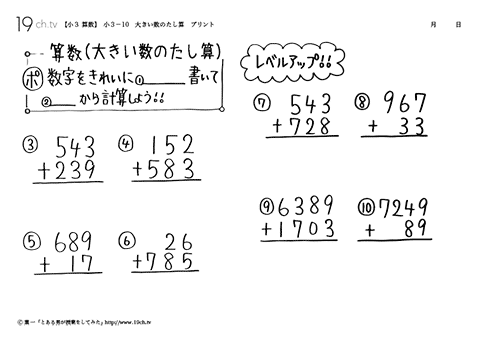 19ch.tv 【小3 算数】 小3-10 大きい数のたし算 プリント 月 日
算数(大きい数のたし算)
ポ 数字をきれいに①____ 書いて
②____ から計算しよう!!
③ 543
+239
④ 152
+583
⑤ 689
+ 17
⑥ 26
+785
レベルアップ!!
⑦ 543
+728
⑧ 967
+ 33
⑨ 6389
+1703
⑩ 7249
+ 89
© 葉一「とある男が授業をしてみた」http://www.19ch.tv